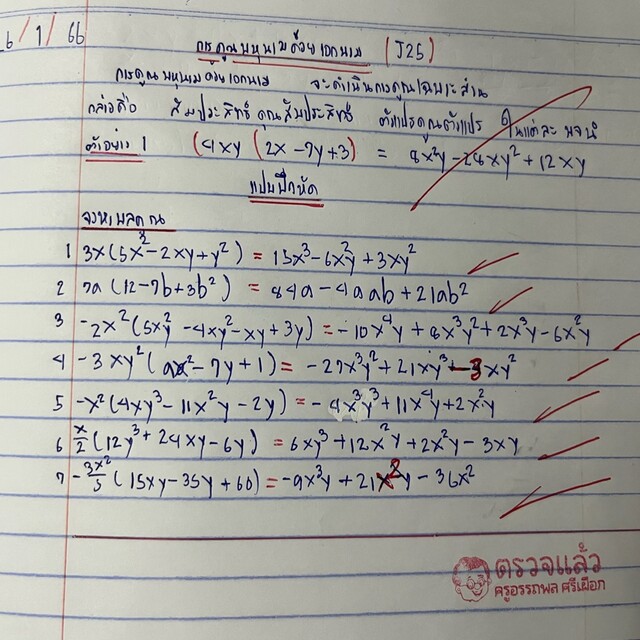 6/1/66
การคูณพหุนามด้วยเอกนาม (J25)
การคูณพหุนามด้วยเอกนาม จะดำเนินการคูณเฉพาะส่วน
กล่าวคือ สัมประสิทธิ์คูณสัมประสิทธิ์ ตัวแปรคูณตัวแปร ในแต่ละพจน์
ตัวอย่าง 1 (4xy (2x - 7y + 3) = 8x²y - 28xy² + 12xy
แบบฝึกหัด
จงหาผลคูณ
1 3x(5x² - 2xy + y²) = 15x³ - 6x²y + 3xy²
2 7a (12 - 7b + 3b²) = 84a - 49ab + 21ab²
3 -2x² (5x²y - 4xy² - xy + 3y) = -10x⁴y + 8x³y² + 2x³y - 6x²y
4 -3xy² (9x² - 7y + 1) = -27x³y² + 21xy³ - 3xy²
5 -x² (4xy³ - 11x²y - 2y) = -4x³y³ + 11x⁴y + 2x²y
6 x/2 (12y³ + 24xy - 6y) = 6xy³ + 12x²y + 2x²y - 3xy
7 -3x²/5 (15xy - 35y + 60) = -9x³y + 21x²y - 36x²
ตรวจแล้ว
ครูอรรถพล ศรีเผือก